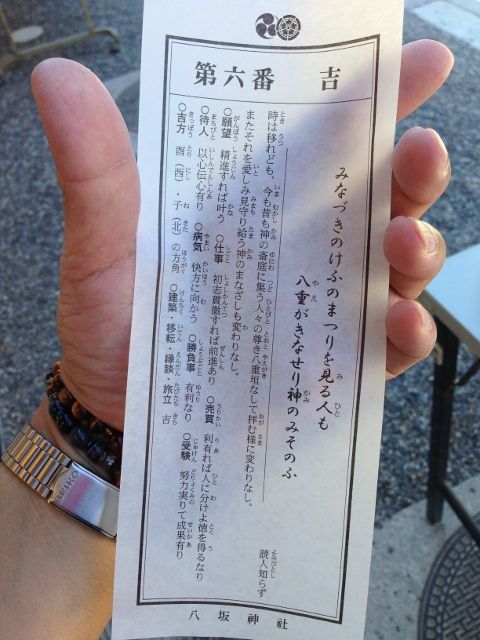 第六番 吉
みなづきのけふのまつりを見る人も
八重がきなせり神のみそのふ
読人知らず
時は移れども、今も昔も神の斎庭に集う人々の尊き八重垣なして拝む様に変わりなし。
またそれを愛しみ見守り給う神のまなざしも変わりなし。
〇願望 精進すれば叶う 〇仕事 初志貫徹すれば前進あり 〇売買 利有れば人に分けよ徳を得るなり
〇待人 以心伝心有り 〇病気 快方に向かう 〇勝負事 有利なり 〇受験 努力実りて成果有り
〇吉方 酉(西)・子(北)の方角 〇建築・移転・縁談 旅立 吉
八坂神社
SEIKO